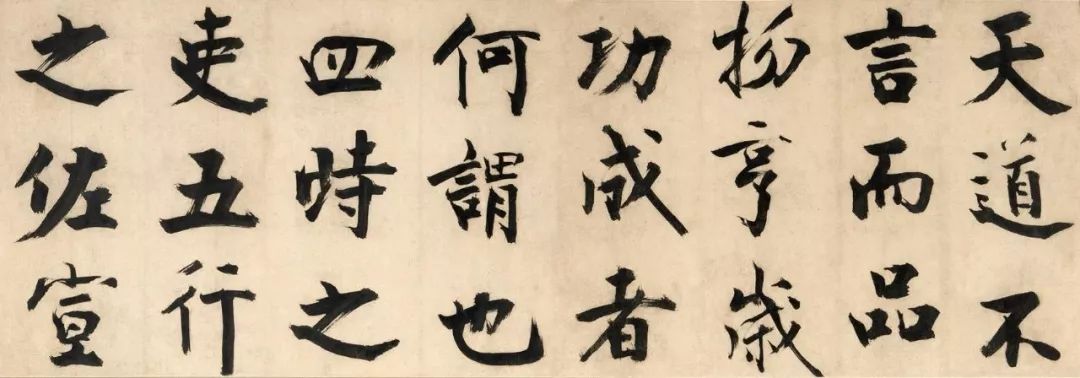 天道不
言而品
物亨歲
功成者
何謂也
四時之
吏五行
之佐宣